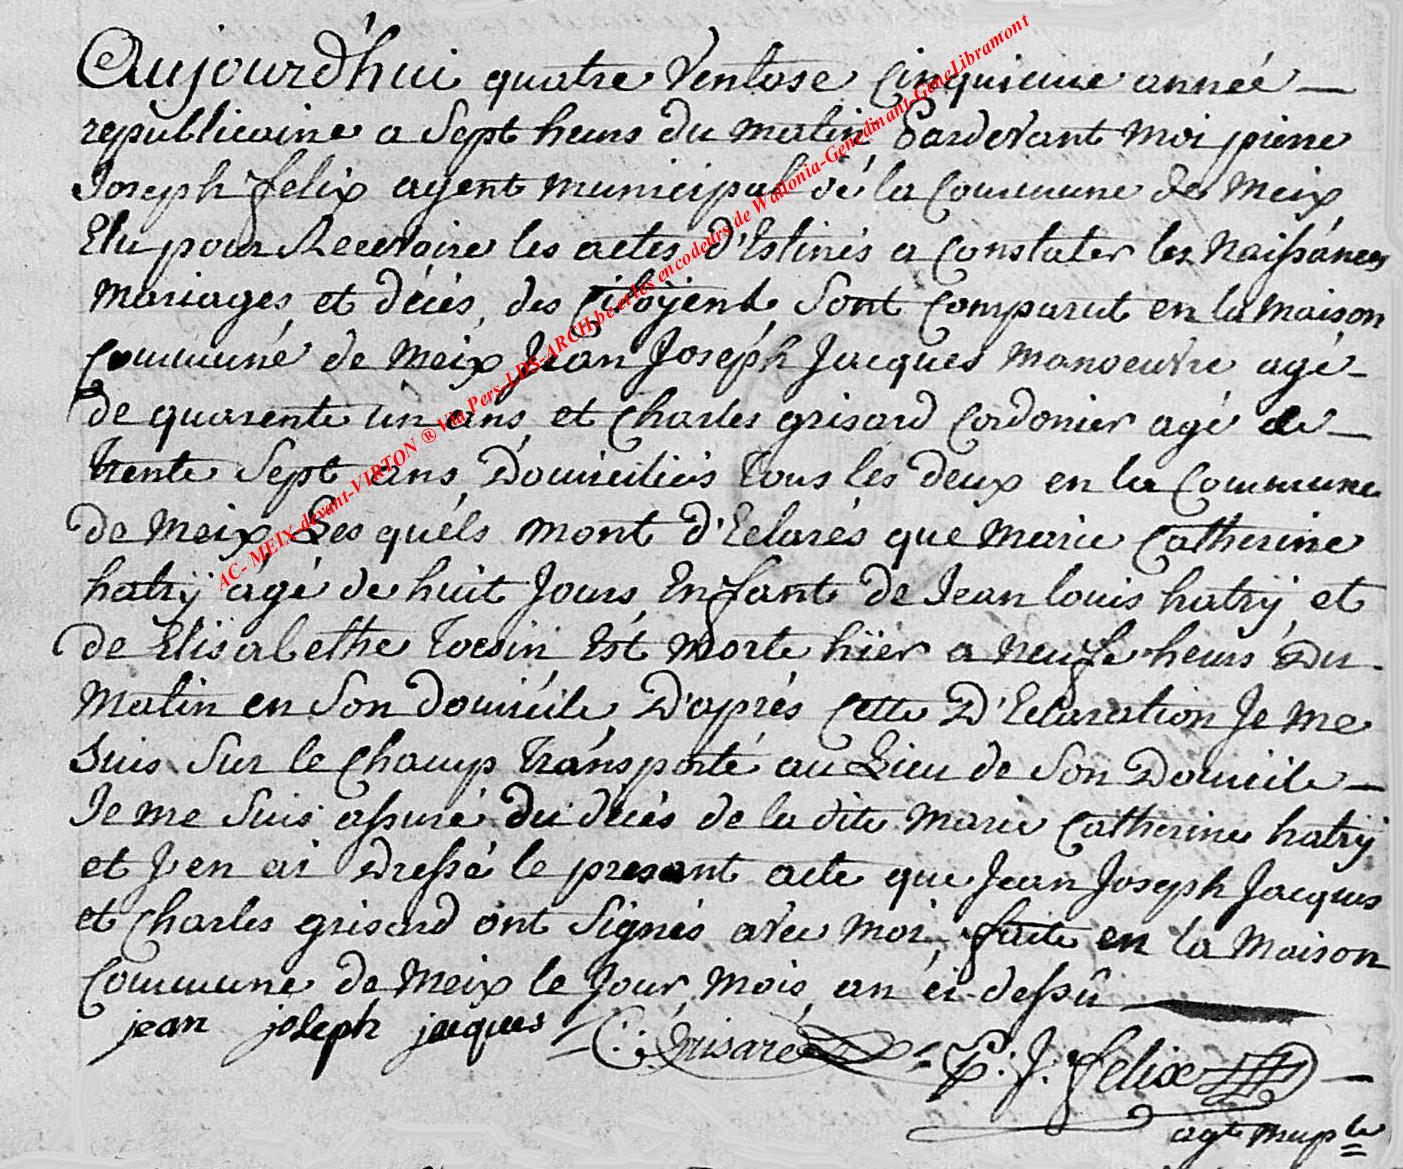 Aujourd'hui quatre Ventose Cinquieme année —
republicaine a Sept heurs du matin Pardevant Moi pierre
Joseph felix agent municipal de la Commune de Meix
Elu pour Recevoire les actes d'Estinés a Constater les Naissánces
Mariages et décés, des Citoÿens Sont Comparut en la maison
Communé de Meix Jean Joséph Jacques Manoeuvre agé –
de quarente un ans et Charles grisard Cordonier agé de —
trente Sept ans Domiciliés tous les deux en la Commune
de Meix, Les quéls mont d'Eclarés que Marie Catherine
hatrÿ ágé de huit Jours Enfant de Jean louis hatrÿ et
de Elisabethe Tocsin Est morte hïer a neufe heurs Du
Matin en Son domicile, D'aprés Cette D'Eclaration Je me
Suis Sur le Champ tránsporté au Lieu de Son Domicile —
Je me Suis assuré du décés de la dite Marie Catherine hatrÿ
et J'en ai Dressé le present acte que Jean Joseph Jacques
et Charles grisard ont Signés avec moi, faite en la Maison
Commune de Meix le Jour, Mois, an ci-dessû
jean joseph jacques = C: Grisard = P: J. felix —
agt muple
AC- MEIX-devant-VIRTON ® Via Pers-LDS-ARCH.be et les encodeurs de Wallonia-Genedinant-GeneLibramont